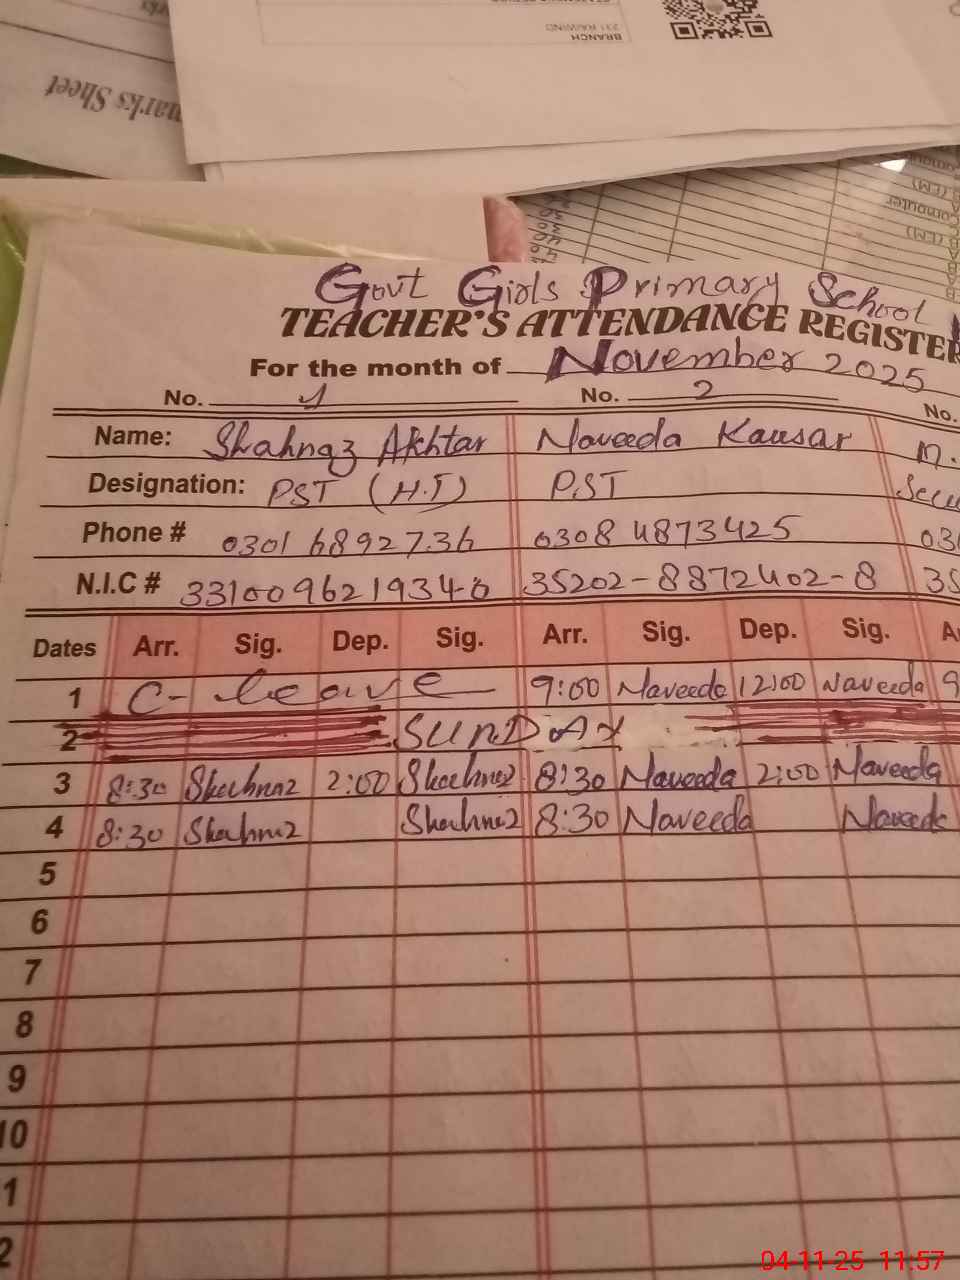 marks Sheet
BRANCH
231 RAIWIND
Computer
(EM)
Govt Girls Primary School
TEACHER'S ATTENDANCE REGISTER
For the month of November 2025
No. 1 No. 2 No.
Name: Shahnaz Akhtar Naveeda Kausar M.
Designation: PST (H.T) PST
Phone # 0301 6892736 0308 4873425 03
N.I.C # 3310096219346 35202-8872402-8 35
Dates Arr. Sig. Dep. Sig. Arr. Sig. Dep. Sig. A
1 C- leave 9:00 Naveeda 12:00 Naveeda 9
2 SUNDAY
3 8:30 Shahnaz 2:00 Shahnaz 8:30 Naveeda 2:00 Naveeda
4 8:30 Shahnaz Shahnaz 8:30 Naveeda Naveeda
5
6
7
8
9
10
1
2
04-11-25 11:57